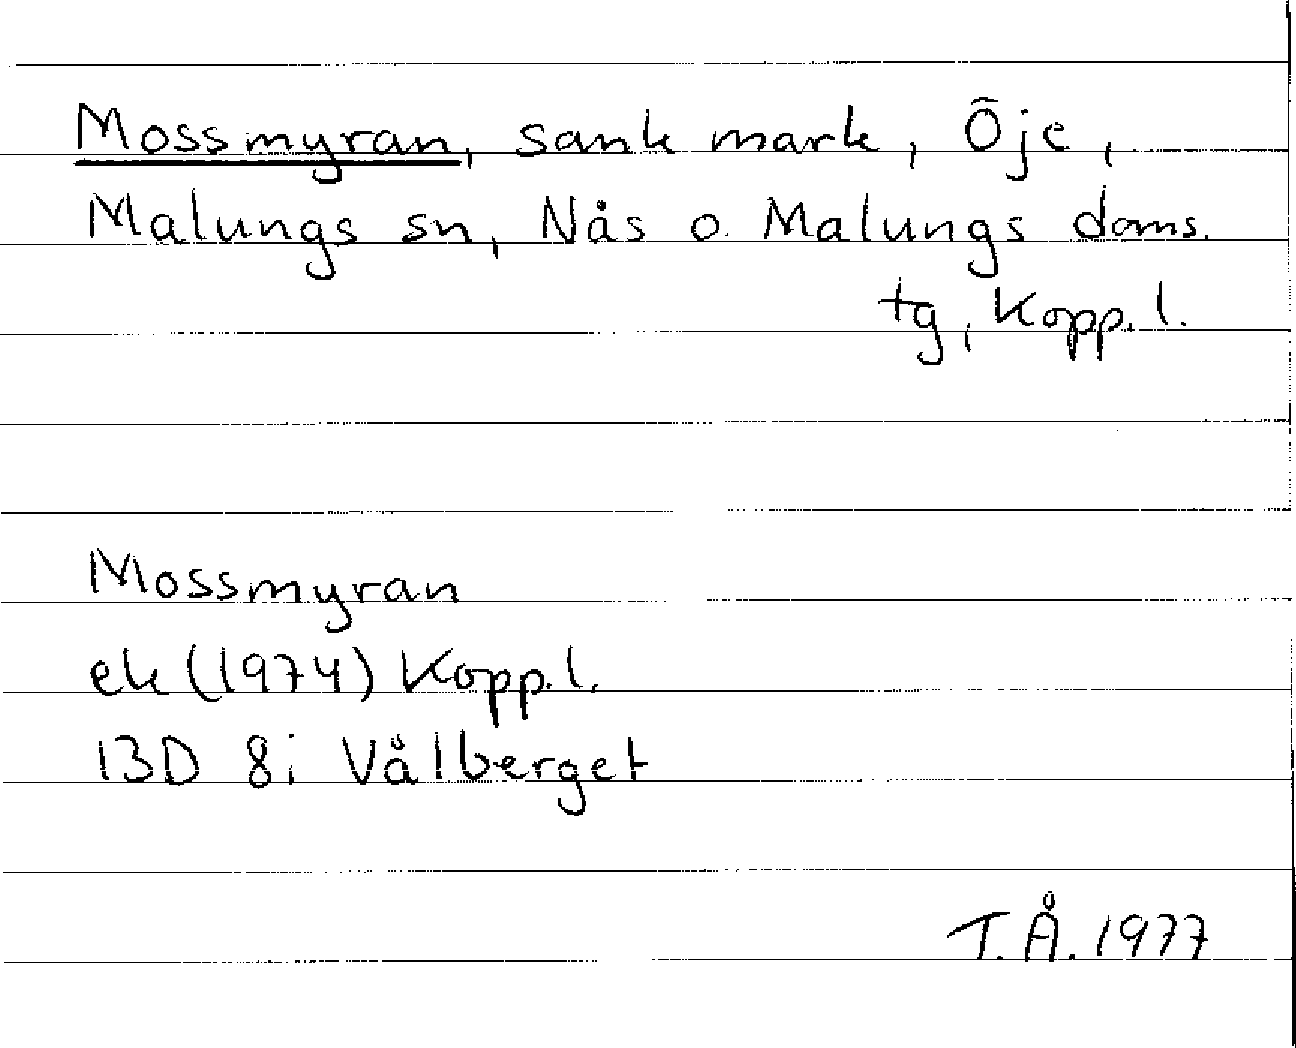 Mossmyran, sank mark, Öje,
Malungs sn, Nås o. Malungs doms.
tg, Kopp. l.
Mossmyran
ek (1974) Kopp. l.
13D 8i Vålberget
T.Å. 1977